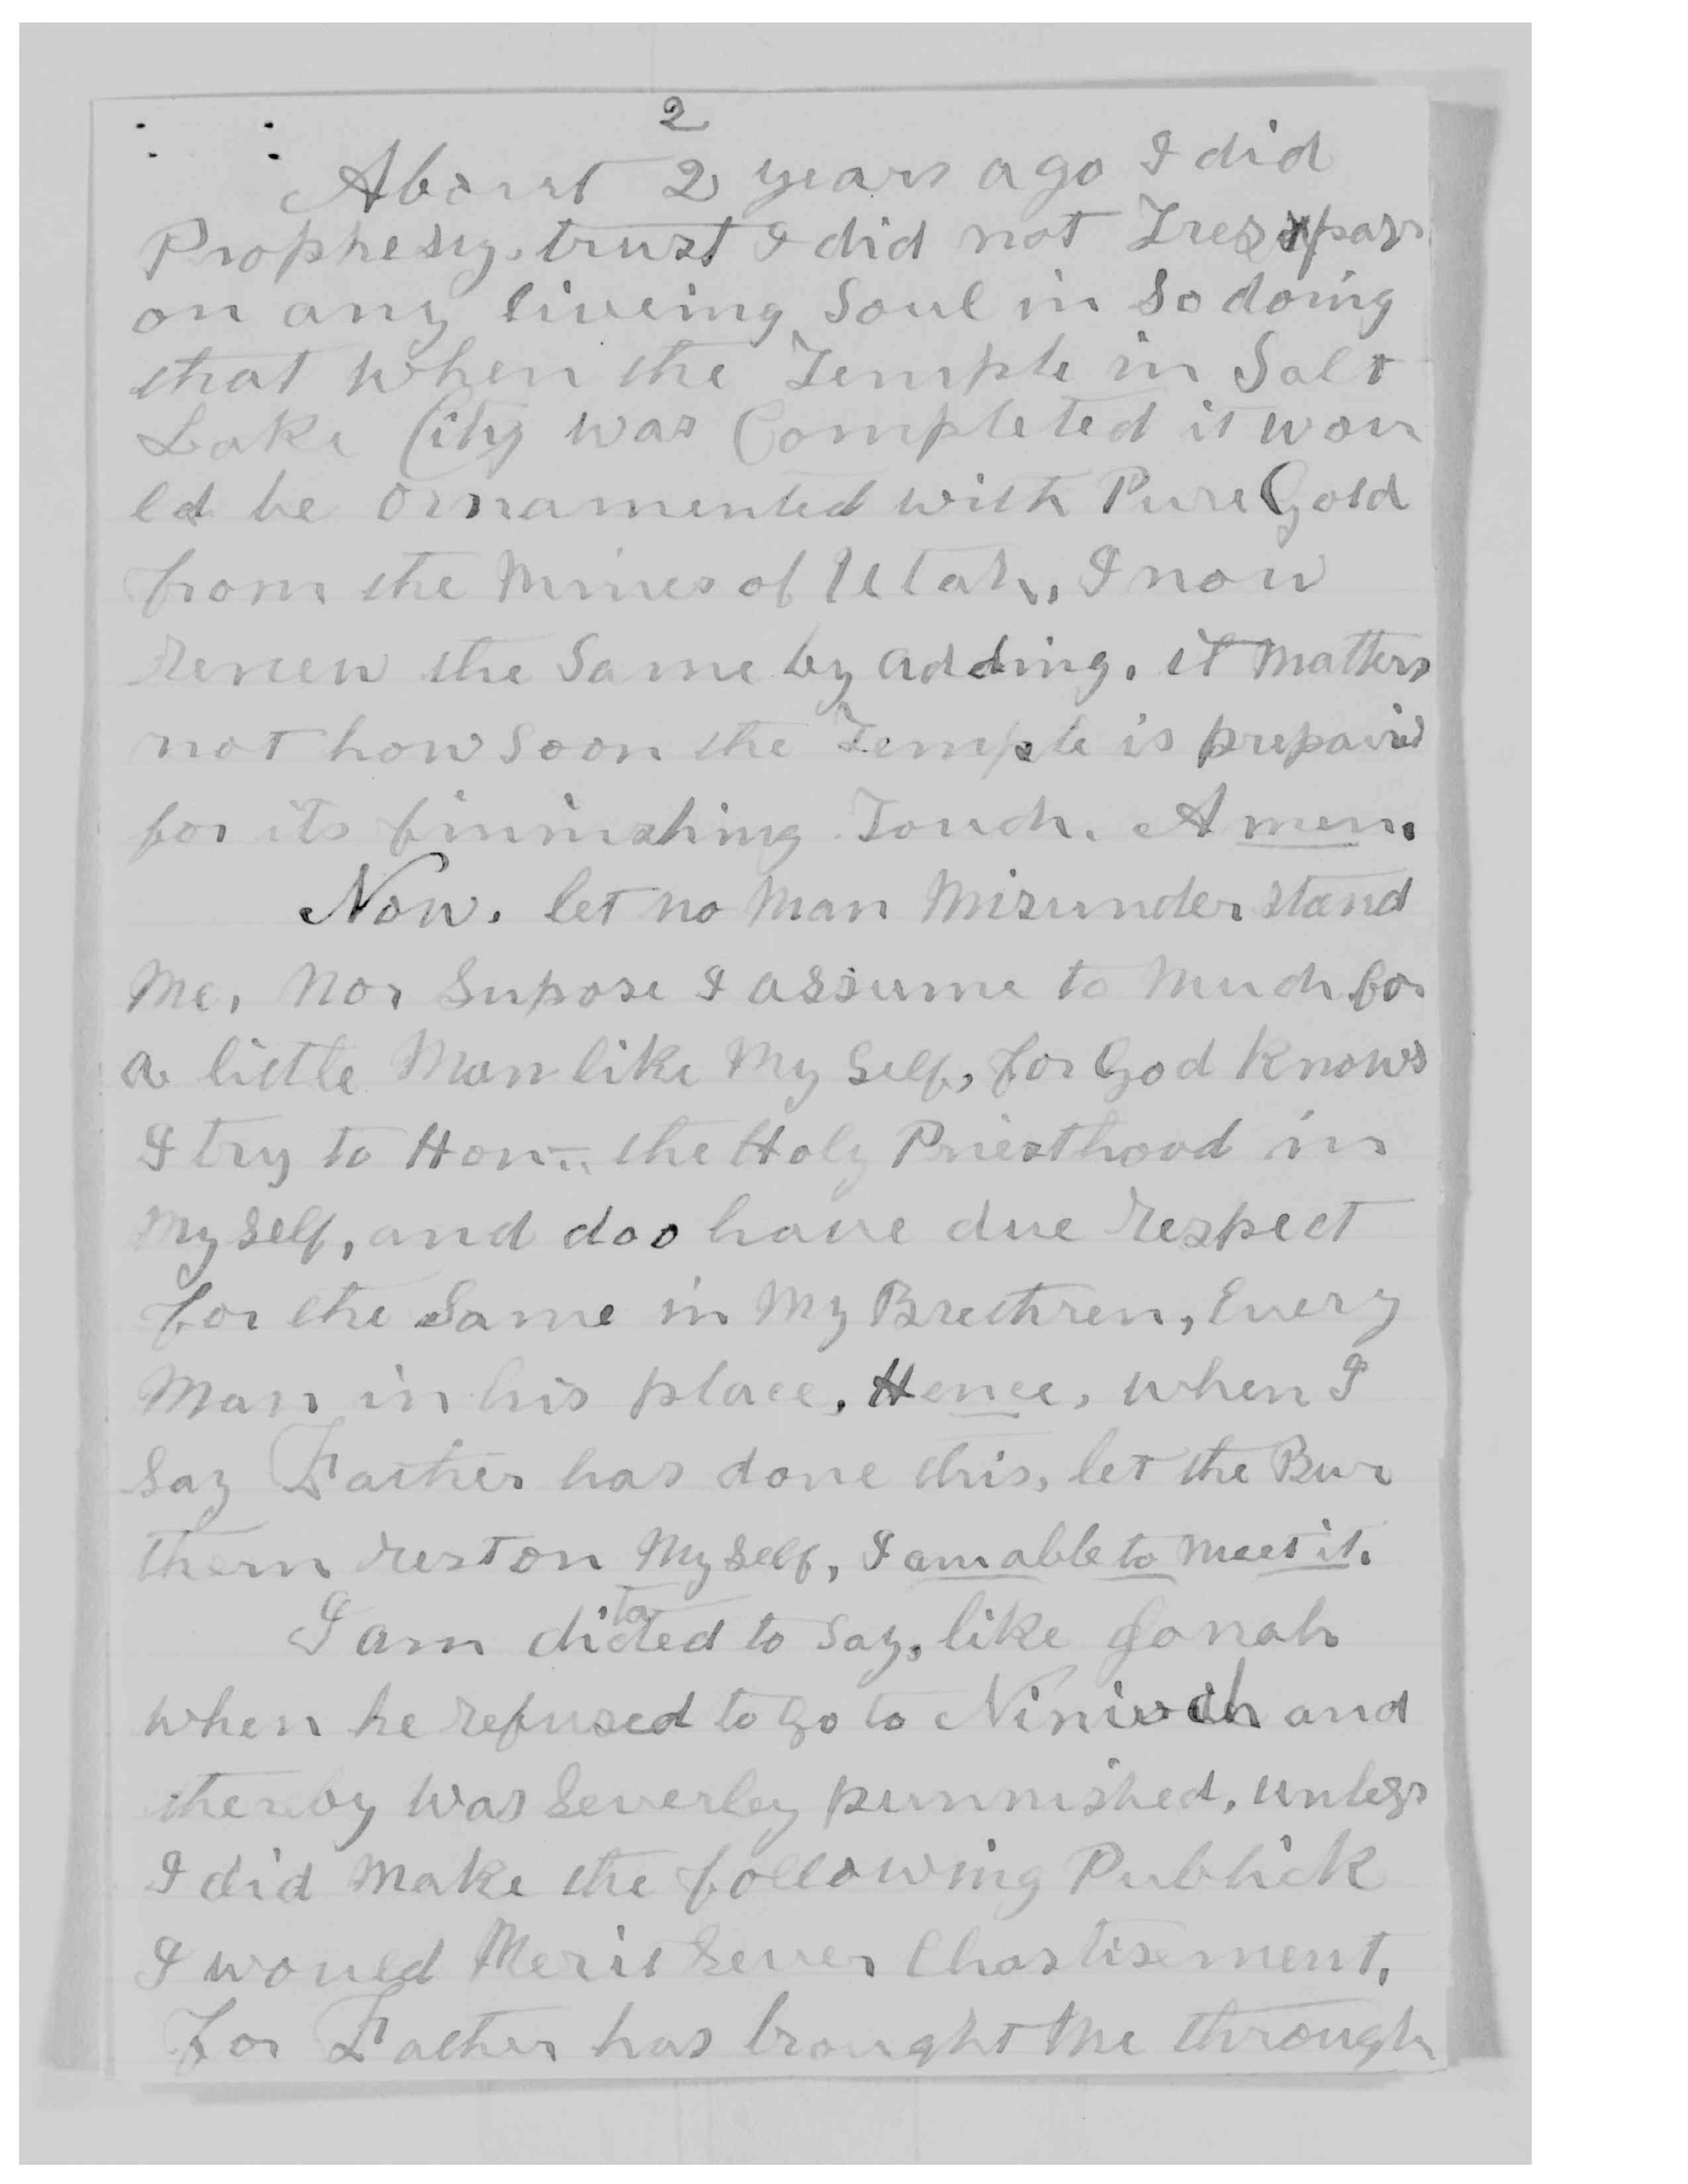 2
About 2 years ago I did
Prophesy. trust I did not Tresspass
on any liveing Soul in So doing
that when the Temple in Salt
Lake City was Completed it wou
ld be Ornamented with Pure Gold
from the Mines of Utah, I now
renew the Same by adding. it Matters
not how Soon the Temple is prepaird
for its finnishing Touch. Amen.
Now. let no Man Misunderstand
Me, Nor Supose I assume to Much for
a little Man like My Self, for God Knows
I try to the Holy Priesthood in
My Self, and doo have due respect
for the Same in My Brethren, Every
Man in his place. Hence, when I
Say Father has done this, let the Bur
thern rest on My Self, I am able to Meet it.
I am dictated to Say, like Jonah
when he refused to Go to Ninivah and
thereby was Severley punnished, unless
I did Make the following Publick
I would Merit Sever Chastisement,
For Father has brought Me through